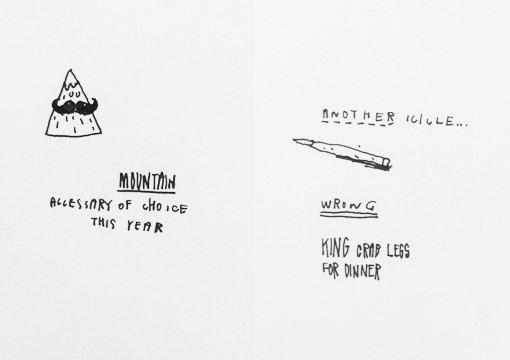 MOUNTAIN
ACCESSARY OF CHOICE
THIS YEAR
ANOTHER ICICLE...
WRONG
KING CRAB LEGS
FOR DINNER